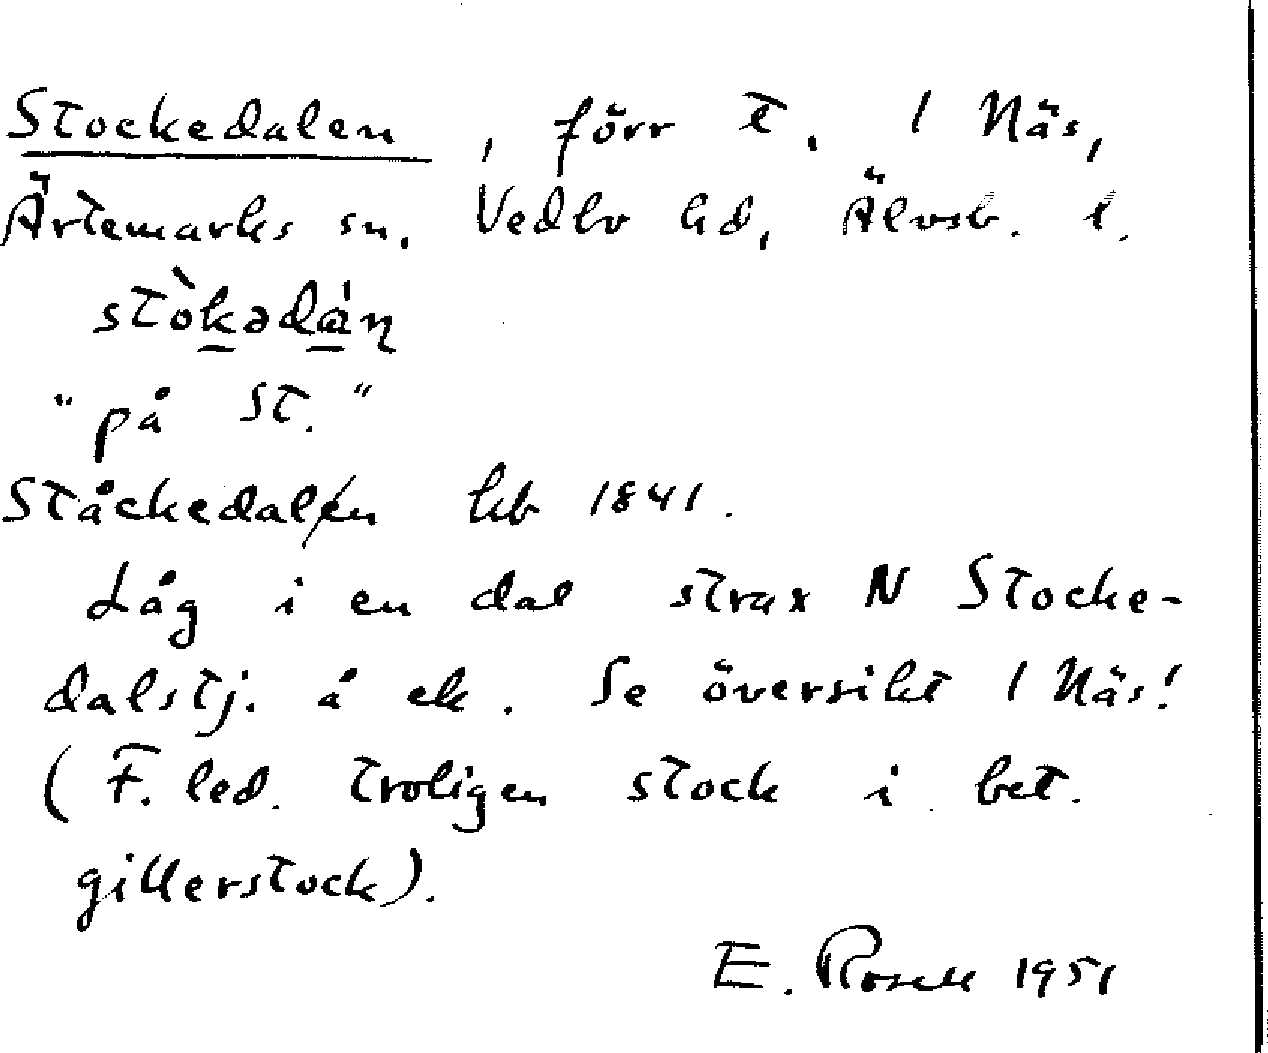 Stockedalen, förr t. 1 Näs,
Ärtemarks sn, Vedbo hd, Älvsb. l.
stòkədán
"på St."
Ståckedalen hb 1841.
Låg i en dal strax N Stocke-
dalstj. å ek. Se översikt 1 Näs!
(F. led. troligen stock i bet.
gillerstock).
E. Rosell 1951